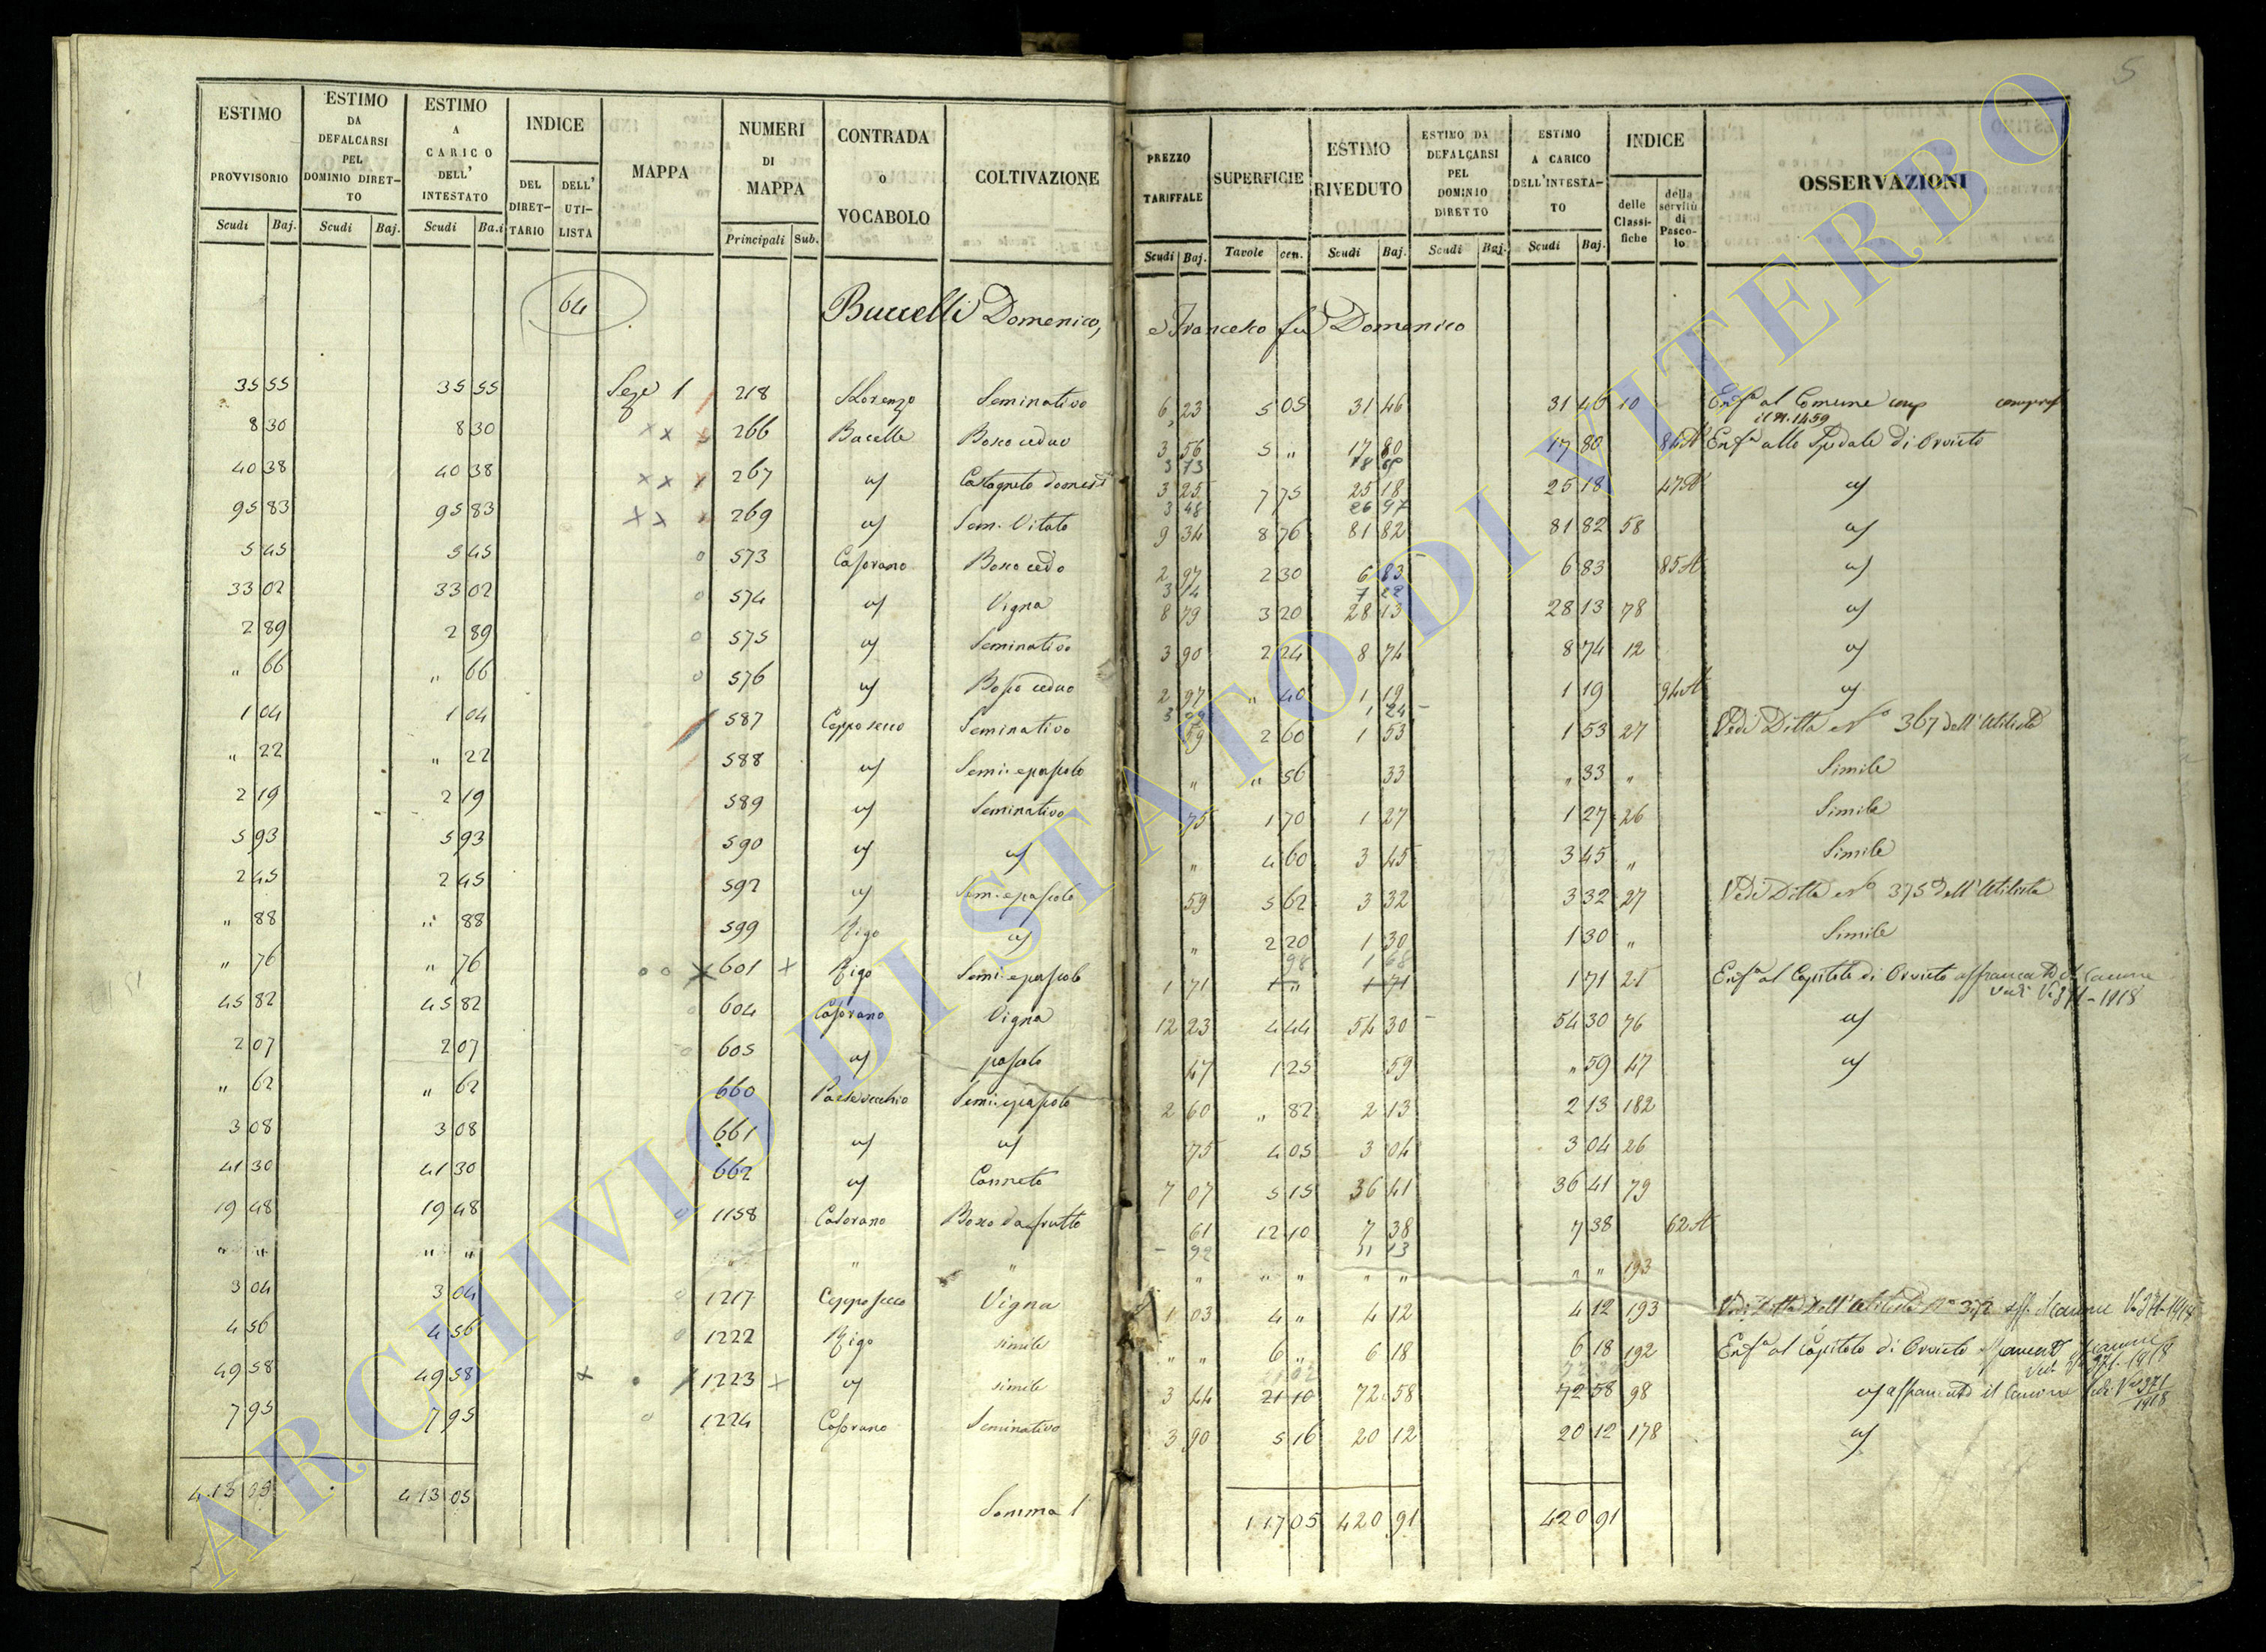 5
ESTIMO PROVVISORIO Scudi Baj.
ESTIMO DA DEFALCARSI PEL DOMINIO DIRETTO Scudi Baj.
ESTIMO A CARICO DELL' INTESTATO Scudi Ba.i
INDICE DEL DIRETTARIO DELL' UTILISTA
MAPPA
NUMERI DI MAPPA Principali Sub.
CONTRADA o VOCABOLO
COLTIVAZIONE
PREZZO TARIFFALE Scudi Baj.
SUPERFICIE Tavole cen.
ESTIMO RIVEDUTO Scudi Baj.
ESTIMO DA DEFALCARSI PEL DOMINIO DIRETTO Scudi Baj.
ESTIMO A CARICO DELL'INTESTATO Scudi Baj.
INDICE delle Classifiche della servitù di Pascolo
OSSERVAZIONI
64 Buccelli Domenico, e Francesco fu Domenico
35 55 35 55 Seze 1 218 S Lorenzo Seminativo 6 23 5 05 31 46 31 46 10 Enfa al Comune
il N. 1459
8 30 8 30 x x x 266 Bucelle Bosco ceduo 3 56 5 " 17 80 17 80 84 A Enfa allo Spedale di Orvieto
3 73 18 65
40 38 40 38 x x x 267 u/ Castagneto domes 3 25 7 75 25 18 25 18 47 A u/
3 48 26 97
95 83 95 83 x x 269 u/ Sem. Vitato 9 34 8 76 81 82 81 82 58 u/
5 45 5 45 0 573 Casorano Bosco cedo 2 97 2 30 6 83 6 83 85 A u/
3 14 7 22
33 02 33 02 0 574 u/ Vigna 8 79 3 20 28 13 28 13 78 u/
2 89 2 89 0 575 u/ Seminativo 3 90 2 24 8 74 8 74 12 u/
" 66 " 66 0 576 u/ Bosco ceduo 2 97 " 40 1 19 1 19 94 A u/
1 24
1 04 1 04 587 Ceppo secco Seminativo 59 2 60 1 53 1 53 27 Vedi Ditta No 367 dell'Utilista
" 22 " 22 588 u/ Semi: epascolo " " 56 33 " 33 " Simile
2 19 2 19 589 u/ Seminativo 75 1 70 1 27 1 27 26 Simile
5 93 5 93 590 u/ u/ " 4 60 3 45 3 45 " Simile
2 45 2 45 592 u/ Sem: epascolo 59 5 62 3 32 3 32 27 Vedi Ditta No 375 dell'Utilista
" 88 " 88 599 Rigo u/ " 2 20 1 30 1 30 " Simile
98 1 68
" 76 " 76 601 x Rigo Semi: epascolo 1 71 1 " 1 71 1 71 25 Enfa al Capitolo di Orvieto affrancato il Canone
Vedi Va 371-1918
45 82 45 82 0 604 Casorano Vigna 12 23 4 44 54 30 54 30 76 u/
2 07 2 07 0 605 u/ pascolo 47 1 25 59 " 59 47 u/
" 62 " 62 660 Paesevecchio Semi: epascolo 2 60 " 82 2 13 2 13 182
3 08 3 08 661 u/ u/ 75 4 05 3 04 3 04 26
41 30 41 30 662 u/ Canneto 7 07 5 15 36 41 36 41 79
19 48 19 48 0 1158 Casorano Bosco da frutto 61 12 10 7 38 7 38 62 A
92 11 13
" " " " " " " " " " " " " " 193
3 04 3 04 0 1217 Ceppo secco Vigna 1 03 4 " 4 12 4 12 193 Vedi Ditta dell'Utilista No 372 aff. il canone Va 371-1918
4 56 4 56 0 1222 Rigo simile " " 6 " 6 18 6 18 192 Enfa al Capitolo di Orvieto
Vedi Va 371-1918
49 58 49 58 x 1223 x u/ simile 3 44 21 10 72 58 72 58 98 u/ affrancato il Canone Vedi Va 371
1918
7 95 7 95 0 1224 Casorano Seminativo 3 90 5 16 20 12 20 12 178 u/
413 05 413 05 Somma 117 05 420 91 420 91
ARCHIVIO DI STATO DI VITERBO